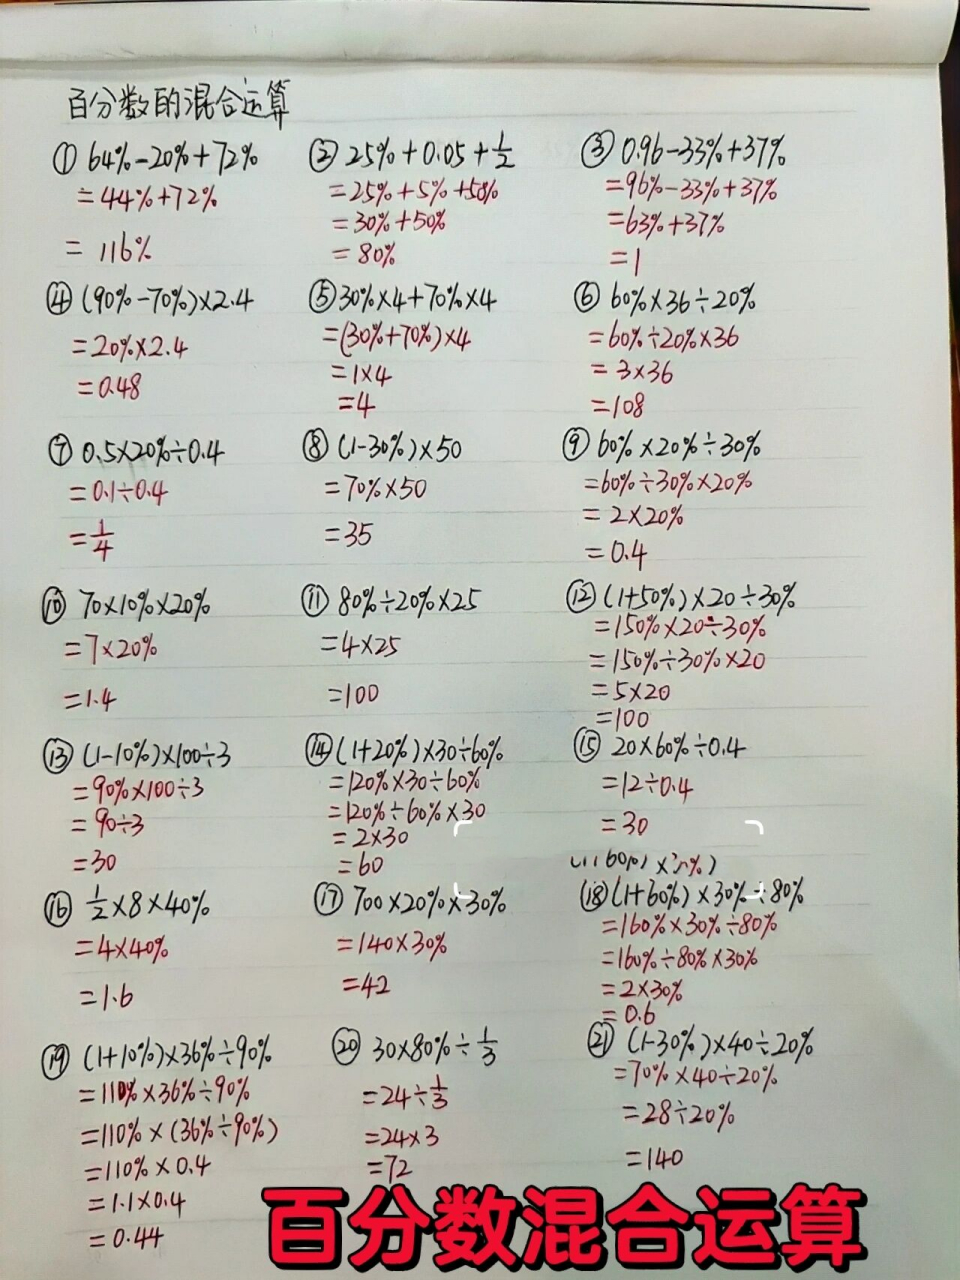 百分数的混合运算
① 64%-20%+72%
=44%+72%
= 116%
② 25%+0.05+1/2
=25%+5%+50%
=30%+50%
=80%
③ 0.96-33%+37%
=96%-33%+37%
=63%+37%
=1
④ (90%-70%)×2.4
=20%×2.4
=0.48
⑤ 30%×4+70%×4
=(30%+70%)×4
=1×4
=4
⑥ 60%×36÷20%
=60%÷20%×36
=3×36
=108
⑦ 0.5×20%÷0.4
=0.1÷0.4
=1/4
⑧ (1-30%)×50
=70%×50
=35
⑨ 60%×20%÷30%
=60%÷30%×20%
=2×20%
=0.4
⑩ 70×10%×20%
=7×20%
=1.4
⑪ 80%÷20%×25
=4×25
=100
⑫ (1+50%)×20÷30%
=150%×20÷30%
=150%÷30%×20
=5×20
=100
⑬ (1-10%)×100÷3
=90%×100÷3
=90÷3
=30
⑭ (1+20%)×30÷60%
=120%×30÷60%
=120%÷60%×30
=2×30
=60
⑮ 20×60%÷0.4
=12÷0.4
=30
⑯ 1/2×8×40%
=4×40%
=1.6
⑰ 700×20%×30%
=140×30%
=42
⑱ (1+60%)×30%÷80%
=160%×30%÷80%
=160%÷80%×30%
=2×30%
=0.6
⑲ (1+10%)×36%÷90%
=110%×36%÷90%
=110%×(36%÷90%)
=110%×0.4
=1.1×0.4
=0.44
⑳ 30×80%÷1/3
=24÷1/3
=24×3
=72
㉑ (1-30%)×40÷20%
=70%×40÷20%
=28÷20%
=140
百分数混合运算